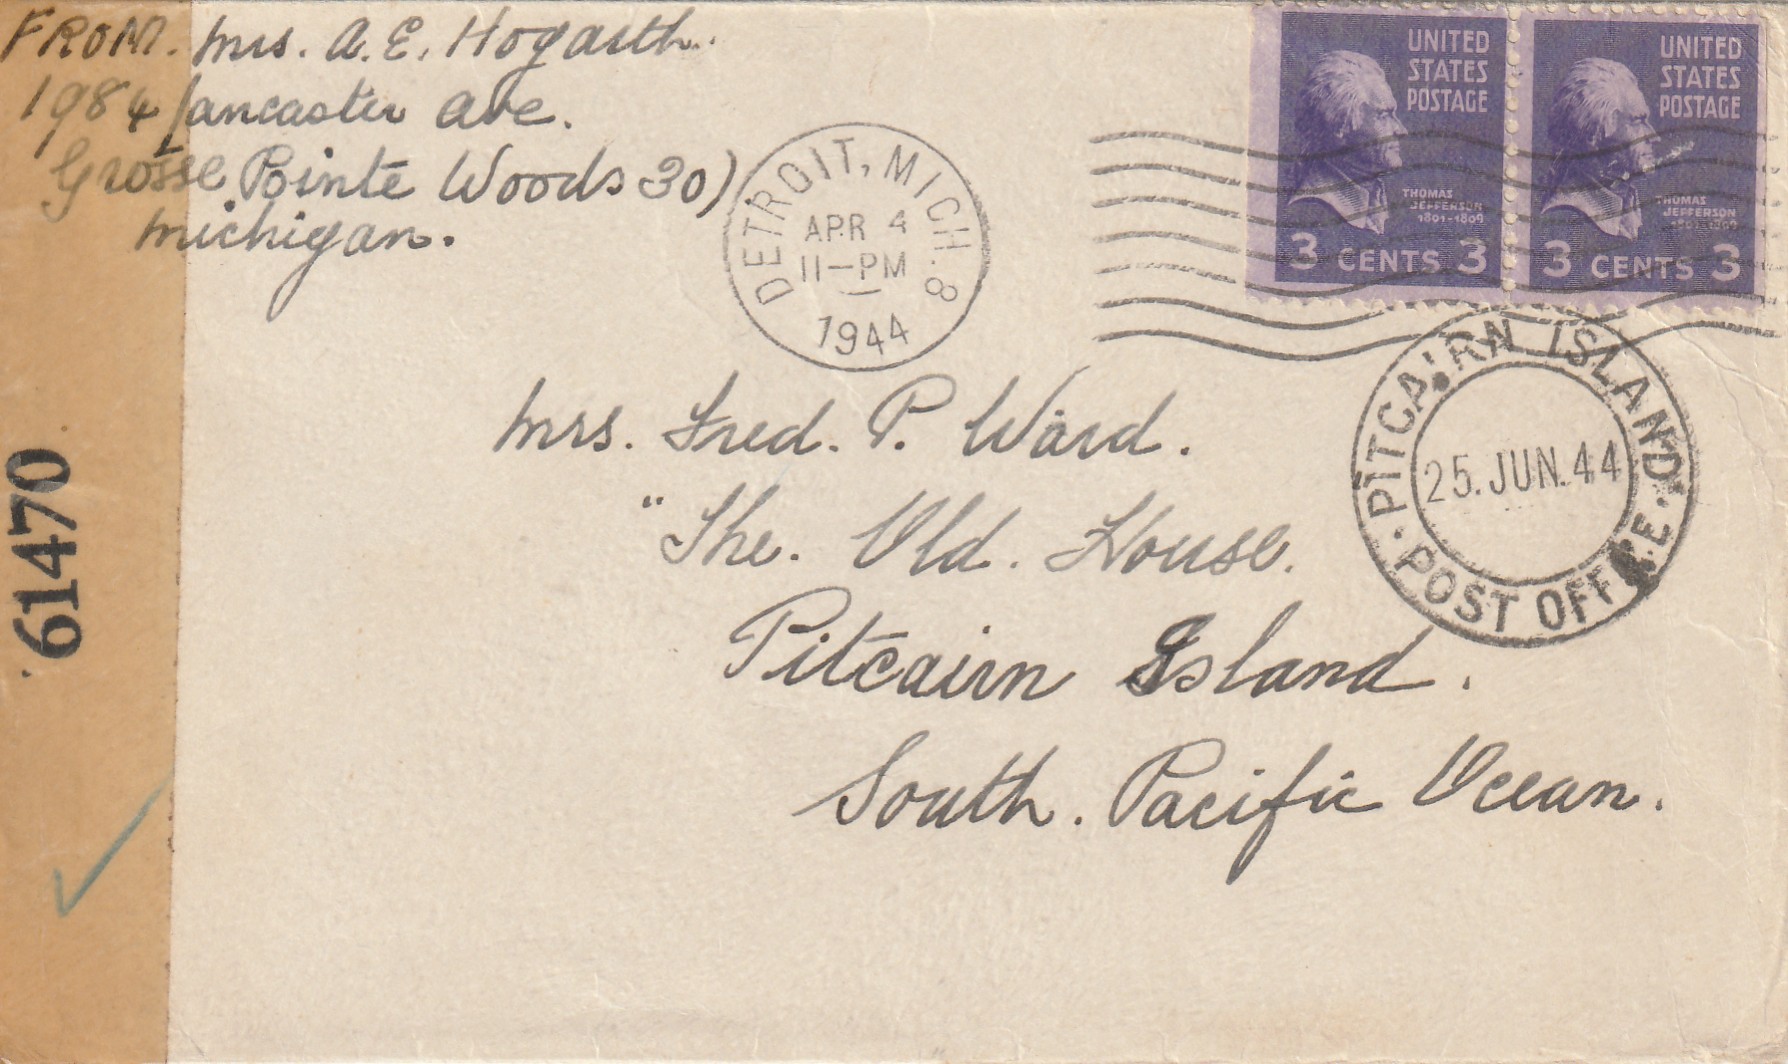 FROM. Mrs. A. E. Hogarth.
1984 Lancaster Ave.
Grosse Pointe Woods 30)
Michigan.
DETROIT, MICH. 8
APR 4
11-PM
1944
UNITED
STATES
POSTAGE
THOMAS
JEFFERSON
1801-1809
3 CENTS 3
UNITED
STATES
POSTAGE
THOMAS
JEFFERSON
1801-1809
3 CENTS 3
PITCAIRN ISLAND
25.JUN.44
POST OFFICE
Mrs. Fred. P. Ward.
"The. Old. House.
Pitcairn Island.
South. Pacific Ocean.
61470